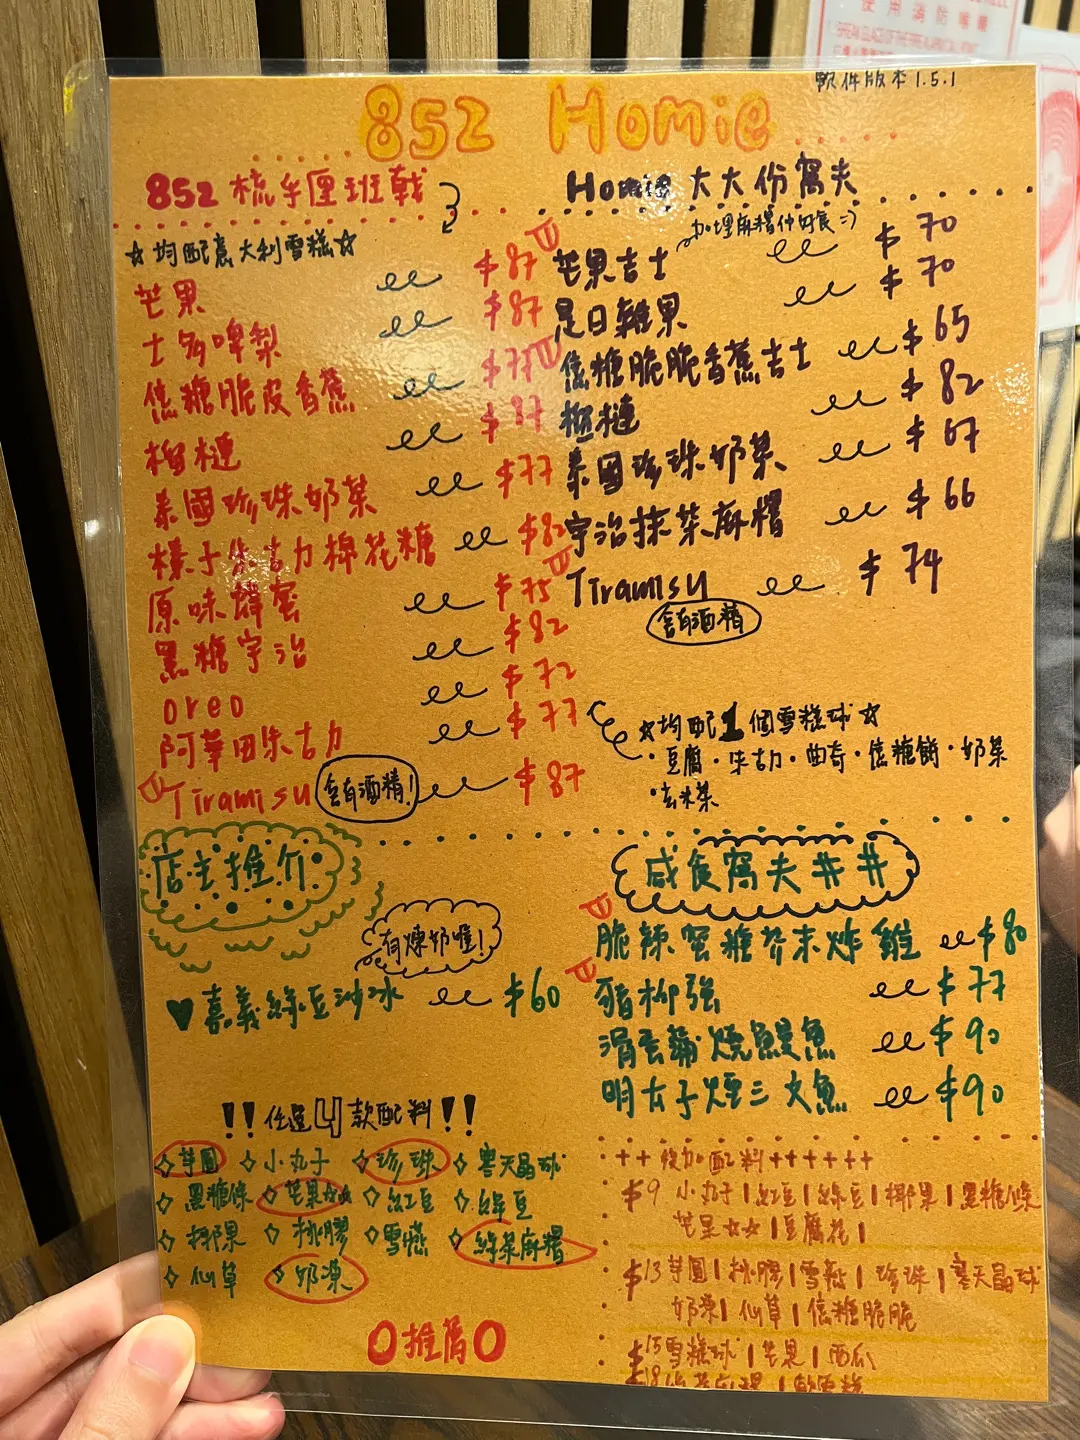 使用消防喉轆
軟件版本1.5.1
852 Homie
852 梳乎厘班戟
☆均配意大利雪糕☆
芒果 $87
士多啤梨 $87
焦糖脆皮香蕉 $77
榴槤 $87
泰國珍珠奶茶 $77
榛子朱古力棉花糖 $82
原味蜂蜜 $75
黑糖宇治 $82
oreo $72
阿華田朱古力 $77
Tiramisu 含有酒精! $87
Homie 大大份窩夫
加埋麻糬仲好食=)
芒果吉士 $70
是日雜果 $70
焦糖脆脆香蕉吉士 $65
榴槤 $82
泰國珍珠奶茶 $67
宇治抹茶麻糬 $66
Tiramisu $74
含有酒精
☆均配1個雪糕球☆
·豆腐·朱古力·曲奇·焦糖餅·奶茶
·玄米茶
店主推介
有煉奶㗎!
♥嘉義綠豆沙冰 $60
!!任選4款配料!!
◇芋圓 ◇小丸子 ◇珍珠 ◇寒天晶球
◇黑糖條 ◇芒果☆☆ ◇紅豆 ◇綠豆
◇椰果 ◇桃膠 ◇雪燕 ◇綠茶麻糬
◇仙草 ◇奶凍
O推薦O
咸食窩夫##
脆辣蜜糖芥末炸雞 $80
豬柳強 $77
滑蛋蒲燒鰻魚 $90
明太子煙三文魚 $90
++後加配料++++++
$9 小丸子|紅豆|綠豆|椰果|黑糖條
芒果☆☆|豆腐花|
$13 芋圓|桃膠|雪燕|珍珠|寒天晶球
奶凍|仙草|焦糖脆脆
$15 雪糕球|芒果|西瓜
$18